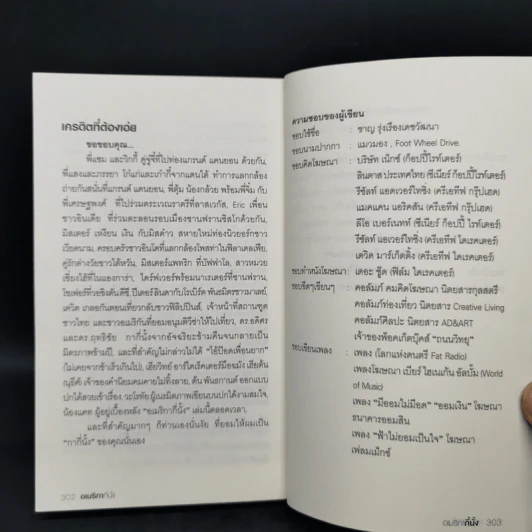 เครดิตที่ต้องเอ่ย
ขอขอบคุณ...
พี่แชม และวิกกี้ คู่จี้ที่ไปท่องแกรนด์ แคนยอน ด้วยกัน,
พี่แดงและภรรยา โก้แก่และเก๋ากี้จากแดนใต้ ทำการแลกกล้อง
ถ่ายกันสนั่นที่แกรนด์ แคนยอน, พี่ตุ้ม น้องกล้วย พร้อมพี่จิ๋ม กับ
พี่เศรษฐพงศ์ ที่ไปร่วมตระเวณราตรีที่ลาสเวกัส, Eric เพื่อน
ชาวอินเดีย ที่ร่วมตะลอนรอบเมืองซานฟรานซิสโกด้วยกัน,
มิสเตอร์ เหงียน เงิน กับมิสด้าว สหายใหม่ท่องนิวยอร์กชาว
เวียดนาม, ครอบครัวชาวอินโดที่แลกกล้องโพสท่าในฟิลาเดลเฟีย,
คู่รักต่างวัยชาวไต้หวัน, มิสเตอร์แพทริก ที่บัฟฟาโล, สาวหมวย
เซี่ยงไฮ้ที่ไนแองการ่า, ไดร์ฟเวอร์พร้อมนาเรเตอร์ที่ซานฟราน,
โชเฟอร์ที่วอชิงตันดีซี,
เจ้าหน้าที่สถานทูต
ชาวไทย และชาวอเมริกันที่ยอมอนุมัติวีซ่าให้ไปเที่ยว, ดร.อดิศร
และดร.ฤทธิชัย กากี่นั้งจากอัจฉริยะข้ามคืนจนกลายเป็น
มิตรภาพข้ามปี, และที่สำคัญไม่กล่าวไม่ได้ “ไอ้ป๊อดเพื่อนยาก”
(ไม่เคยจากช้าเร็วเกินไป),
เจ้าของคำนิยมคมคายไม่ทิ้งลาย, ต้น พันธกานต์ ออกแบบ
ปกได้สวยเข้าเรื่อง,
น้องแคท ผู้อยู่เบื้องหลัง “อเมริกากี่นั้ง” เล่มนี้ตลอดเวลา.
และที่สำคัญมากๆ ก็ท่านเองนั่นงัย ที่ยอมให้ผมเป็น
“กากี่นั้ง” ของคุณนั่นเอง
302 อเมริกากี่นั้ง
ความชอบของผู้เขียน
ชอบใช้ชื่อ : ชาญ รุ่งเรืองเดชวัฒนา
ชอบนามปากกา : แมวมอง , Foot Wheel Drive.
ชอบคิดโฆษณา : บริษัท เน็กซ์ (ก๊อปปี้ไรเตอร์)
ลินตาส ประเทศไทย (ซีเนียร์ ก๊อปปี้ไรเตอร์)
รีซัลท์ แอดเวอร์ไทซิ่ง (ครีเอทีฟ กรุ๊ปเฮด)
แมคแคน แอริคสัน (ครีเอทีฟ กรุ๊ปเฮด)
ลีโอ เบอร์เนทท์ (ซีเนียร์ ก็อปปี้ ไรท์เตอร์)
รีซัลท์ แอดเวอร์ไทซิ่ง (ครีเอทีฟ ไดเรคเตอร์)
เดวิด มาร์เก็ตติ้ง (ครีเอทีฟ ไดเรคเตอร์)
ชอบทำหนังโฆษณา : เดอะ ชู๊ต (ฟิล์ม ไดเรคเตอร์)
ชอบขีดๆเขียนๆ : คอลัมภ์ คมคิดโฆษณา นิตยสารกุลสตรี
คอลัมภ์ท่องเที่ยว นิตยสาร Creative Living
คอลัมภ์ศิลปะ นิตยสาร AD&ART
เจ้าของพ็อคเก็ตบุ๊คส์ “ถนนวิทยุ”
ชอบเขียนเพลง : เพลง (โลกแห่งดนตรี Fat Radio)
เพลงโฆษณา เบียร์ ไฮเนเก้น อัลบั้ม (World
of Music)
เพลง “มีออมไม่มีอด” “ออมเงิน” โฆษณา
ธนาคารออมสิน
เพลง “ฟ้าไม่ยอมเป็นใจ” โฆษณา
เฟลมเม็กซ์
อเมริกากี่นั้ง 303